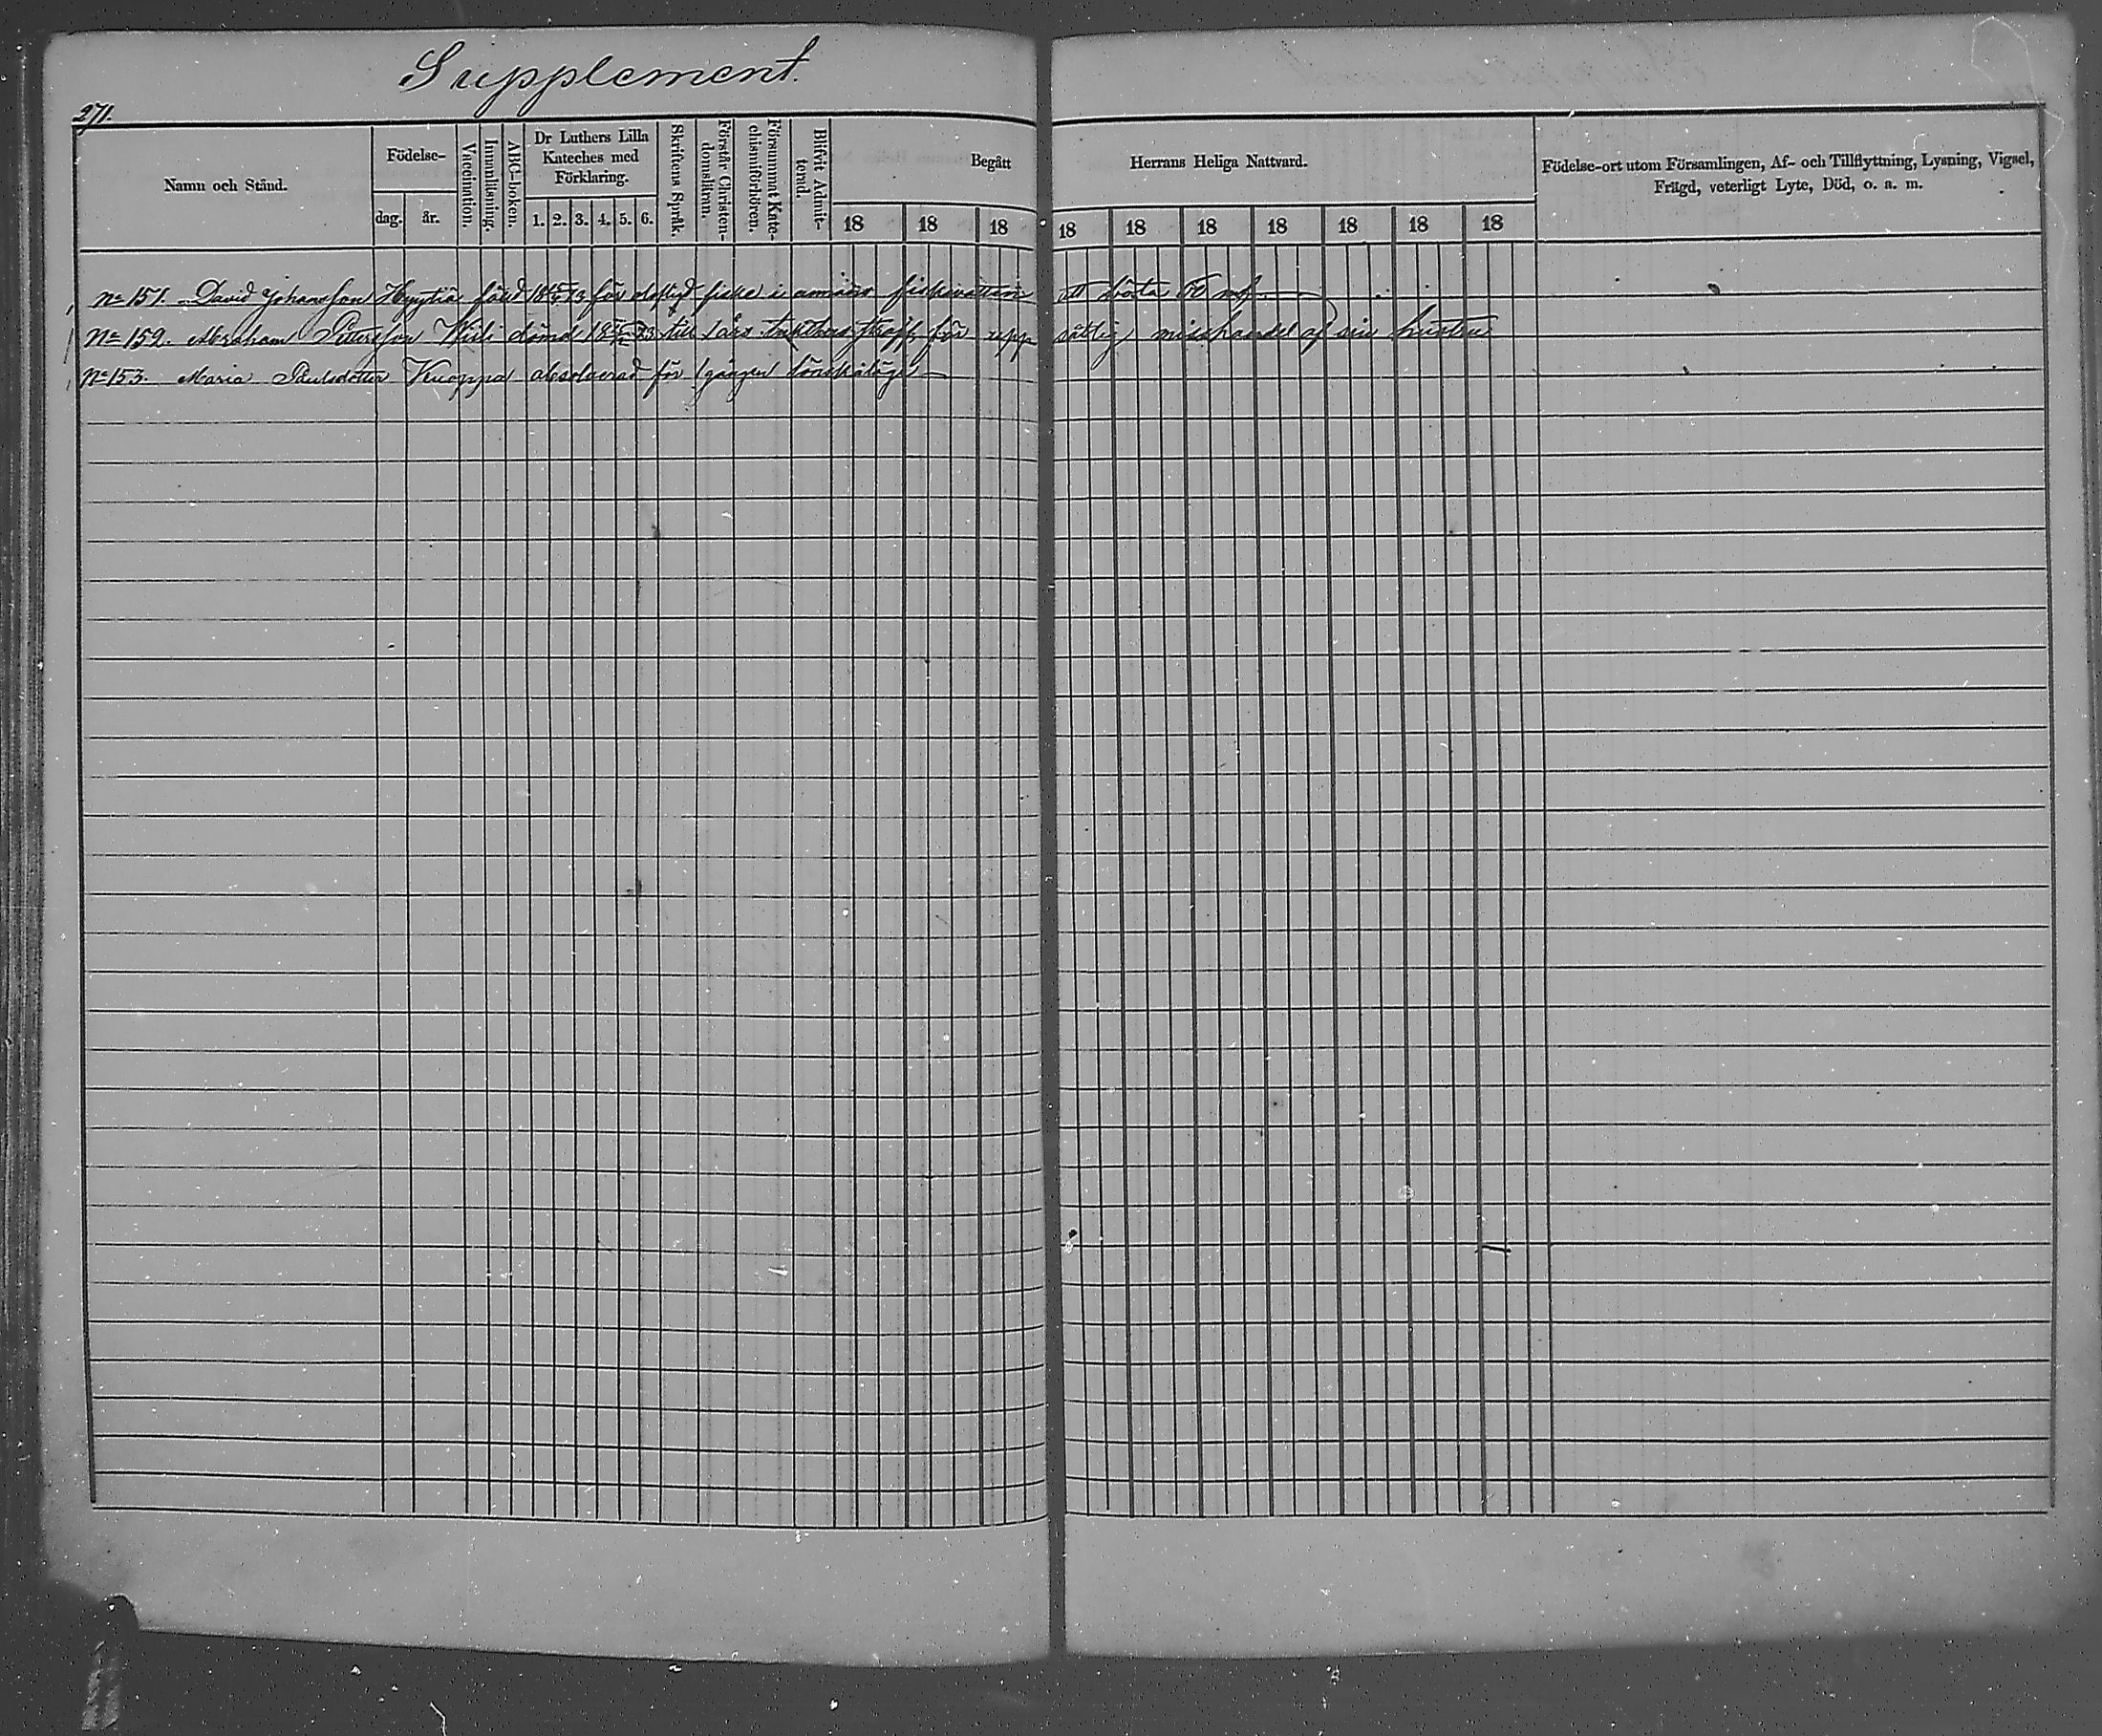 Supplement.
271.
Namn och Stånd.
Födelse-
dag.
år.
Vaccination.
Innanläsning.
ABC-boken.
Dr Luthers Lilla
Kateches med
Förklaring.
1. 2. 3. 4. 5. 6.
Skriftens Språk.
Förstår Christen-
domsläran.
Försummat Kate-
chismiförhören.
Blifvit Admit-
terad.
Begått
Herrans Heliga Nattvard.
18 18 18 18 18 18 18 18 18 18
Födelse-ort utom Församlingen, Af- och Tillflyttning, Lysning, Vigsel,
Frägd, veterligt Lyte, Död, o. a. m.
No 151. David Johansson Hyytiä för olofligt fiske i annans fiskevatten att böta
No 152. Abraham Pettersson dömd till 1 års tukthus straff för uppsåtlig misshandel af sin hustru
No 153. Maria Paulsdotter Knoppa absolverad för 1 gången lönskaläge